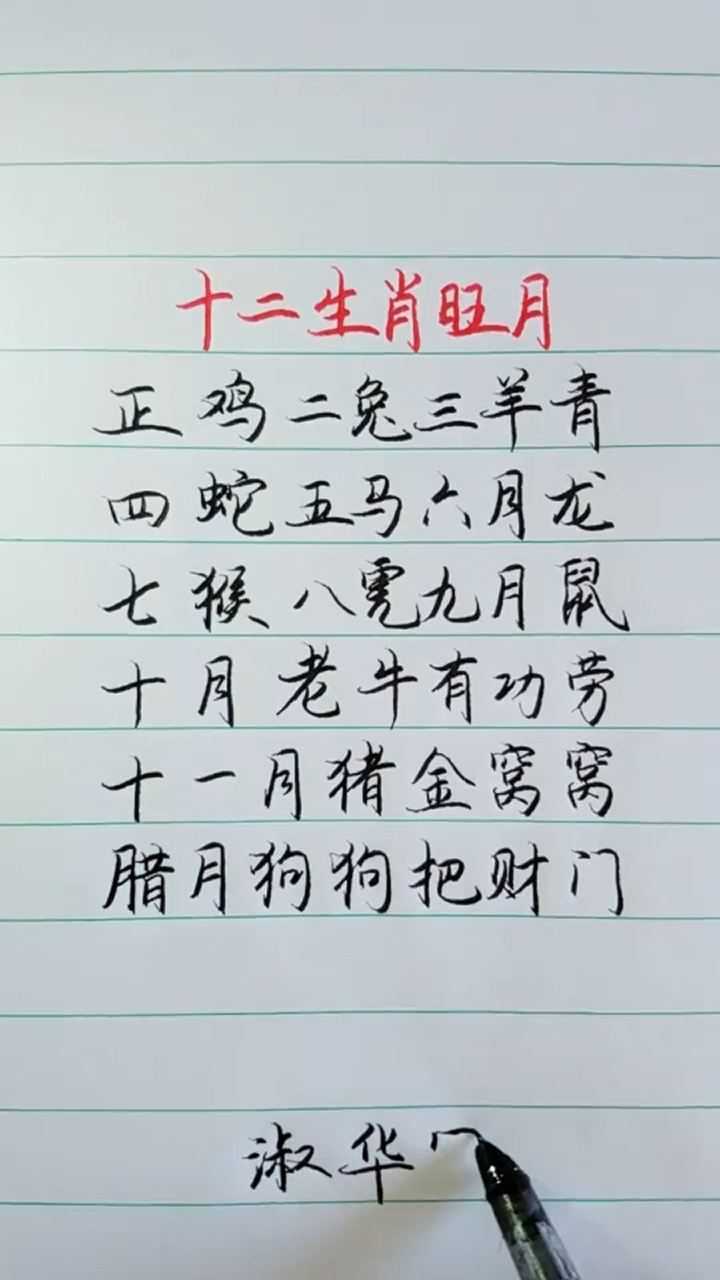 十二生肖旺月
正鸡二兔三羊青
四蛇五马六月龙
七猴八虎九月鼠
十月老牛有功劳
十一月猪金窝窝
腊月狗狗把财门
淑华